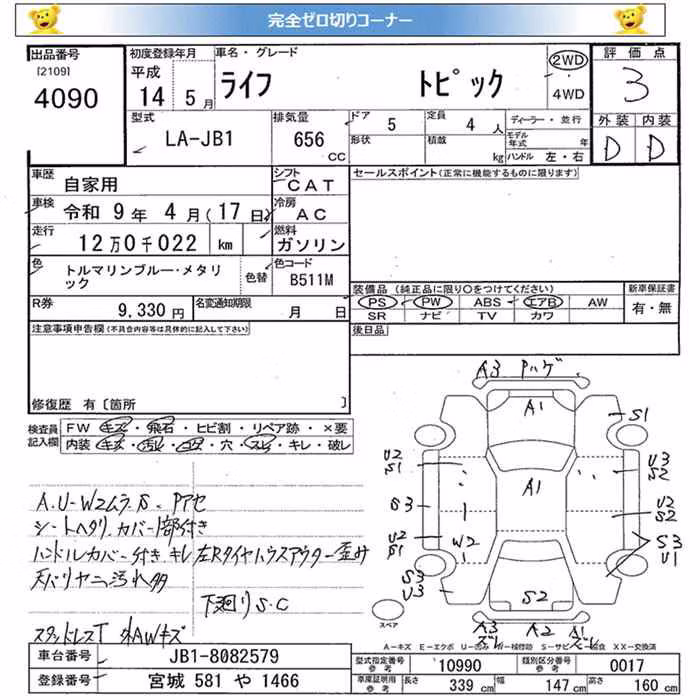 完全ゼロ切りコーナー
出品番号
[2109]
4090
初度登録年月
平成
14 5月
車名・グレード
ライフ トピック
2WD
・
4WD
評価点
3
外装 内装
D D
型式
LA-JB1
排気量
656
CC
ドア
5
定員
4 人
形状
積載
kg
ディーラー・並行
モデル年式 年
ハンドル 左・右
車歴
自家用
シフト
CAT
車検
令和 9年 4月(17日)
冷房
AC
走行
12万0千022 km
燃料
ガソリン
色
トルマリンブルー・メタリック
色替
色コード
B511M
R券
9,330円
名変通知期限
月 日
セールスポイント(正常に機能するものに限ります)
装備品(純正品に限り○をつけてください)
新車保証書
PS PW ABS エアB AW
SR ナビ TV カワ
有・無
後日品
注意事項申告欄(不具合内容等は具体的に記入して下さい)
修復歴 有〔箇所 〕
検査員記入欄
FW キズ・飛石・ヒビ割・リペア跡・×要
内装 キズ・汚れ・コゲ・穴・スレ・キレ・破レ
A.U-W2ムラ.S.Pアセ
シートヘタリ.カバー1部付き
ハンドルカバー付き キレ 左Rタイヤハウスアウター歪み
天バリヤニ汚れ多
下廻りS.C
スタッドレスT 外AWキズ
A3 Pハゲ
A1
S1
U2
S1
U3
S2
A1
S3
U2
S2
U2
S1
W2
S3
U1
S3
U3
S2
スペア
A3
ズレ
A2
A1
ズレ
A－キズ E－エクボ U－凹み W－補修跡 S－サビ C－腐食 XX－交換済
車台番号 JB1-8082579
登録番号 宮城 581 や 1466
型式指定番号
参考
10990
類別区分番号
参考
0017
車庫証明用
参考
長さ 339 cm 幅 147 cm 高さ 160 cm